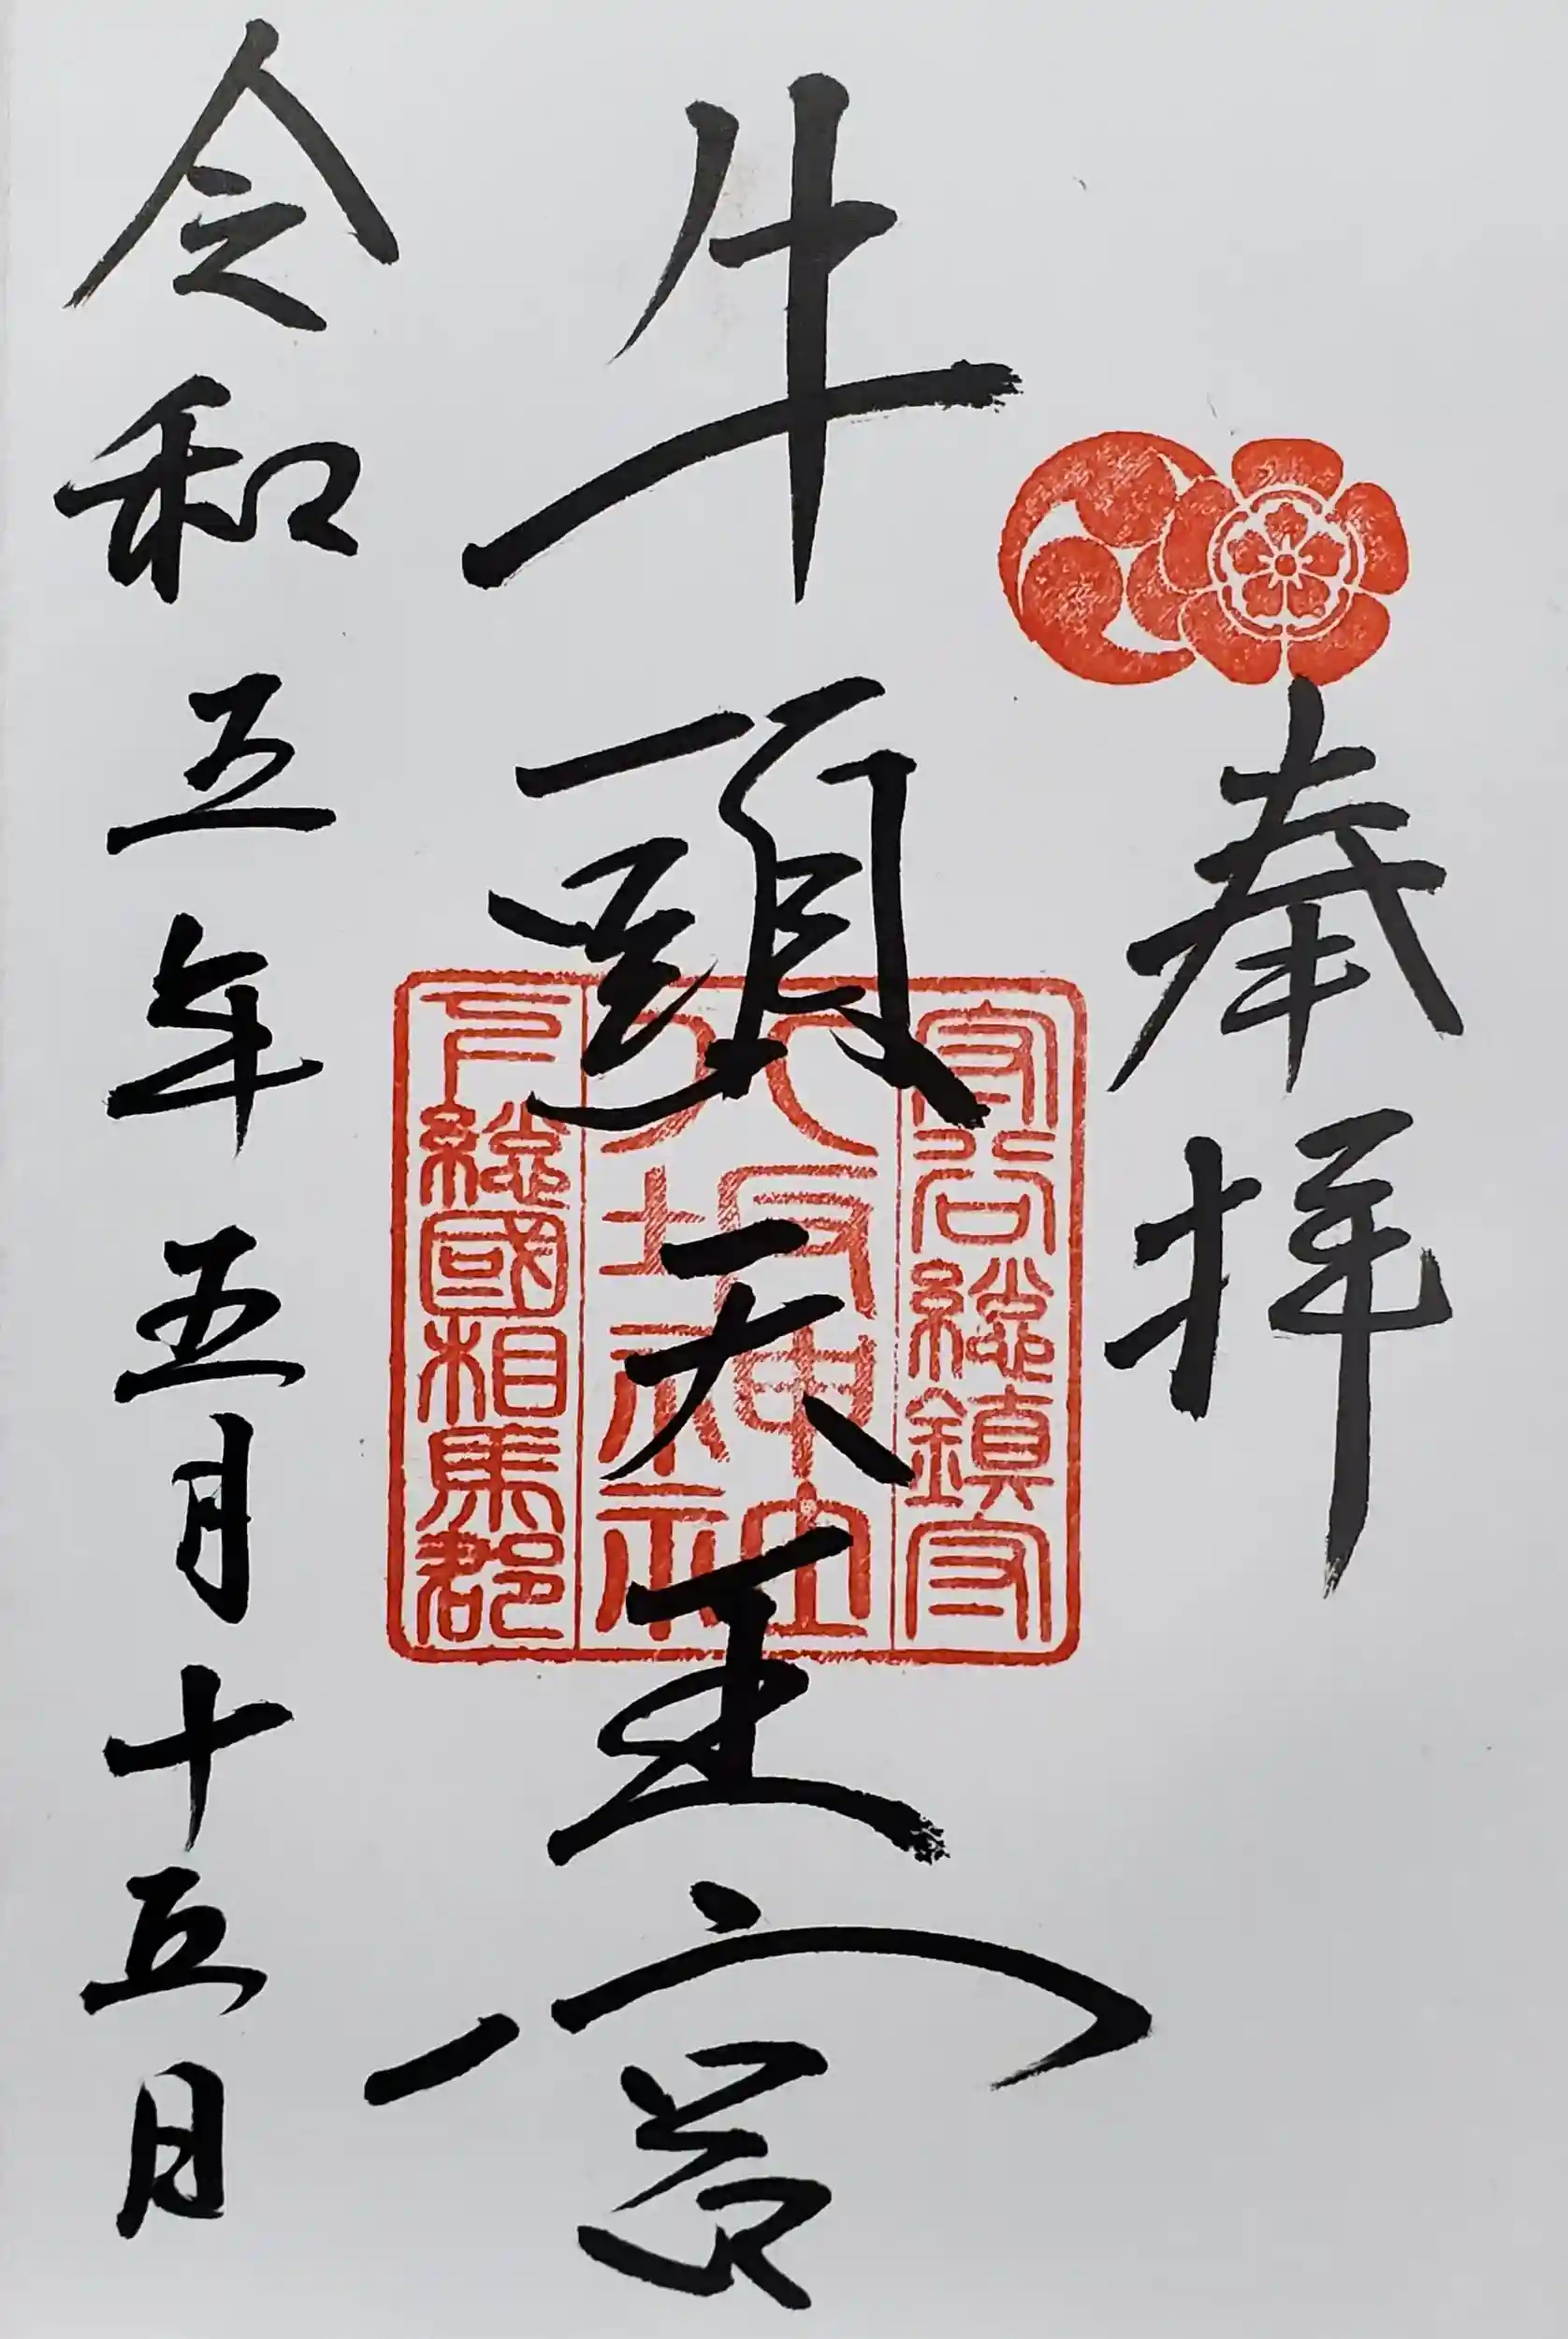 奉拝
牛頭天王宮
守谷總鎮守
八坂神社
下總國相馬郡
令和五年五月十五日